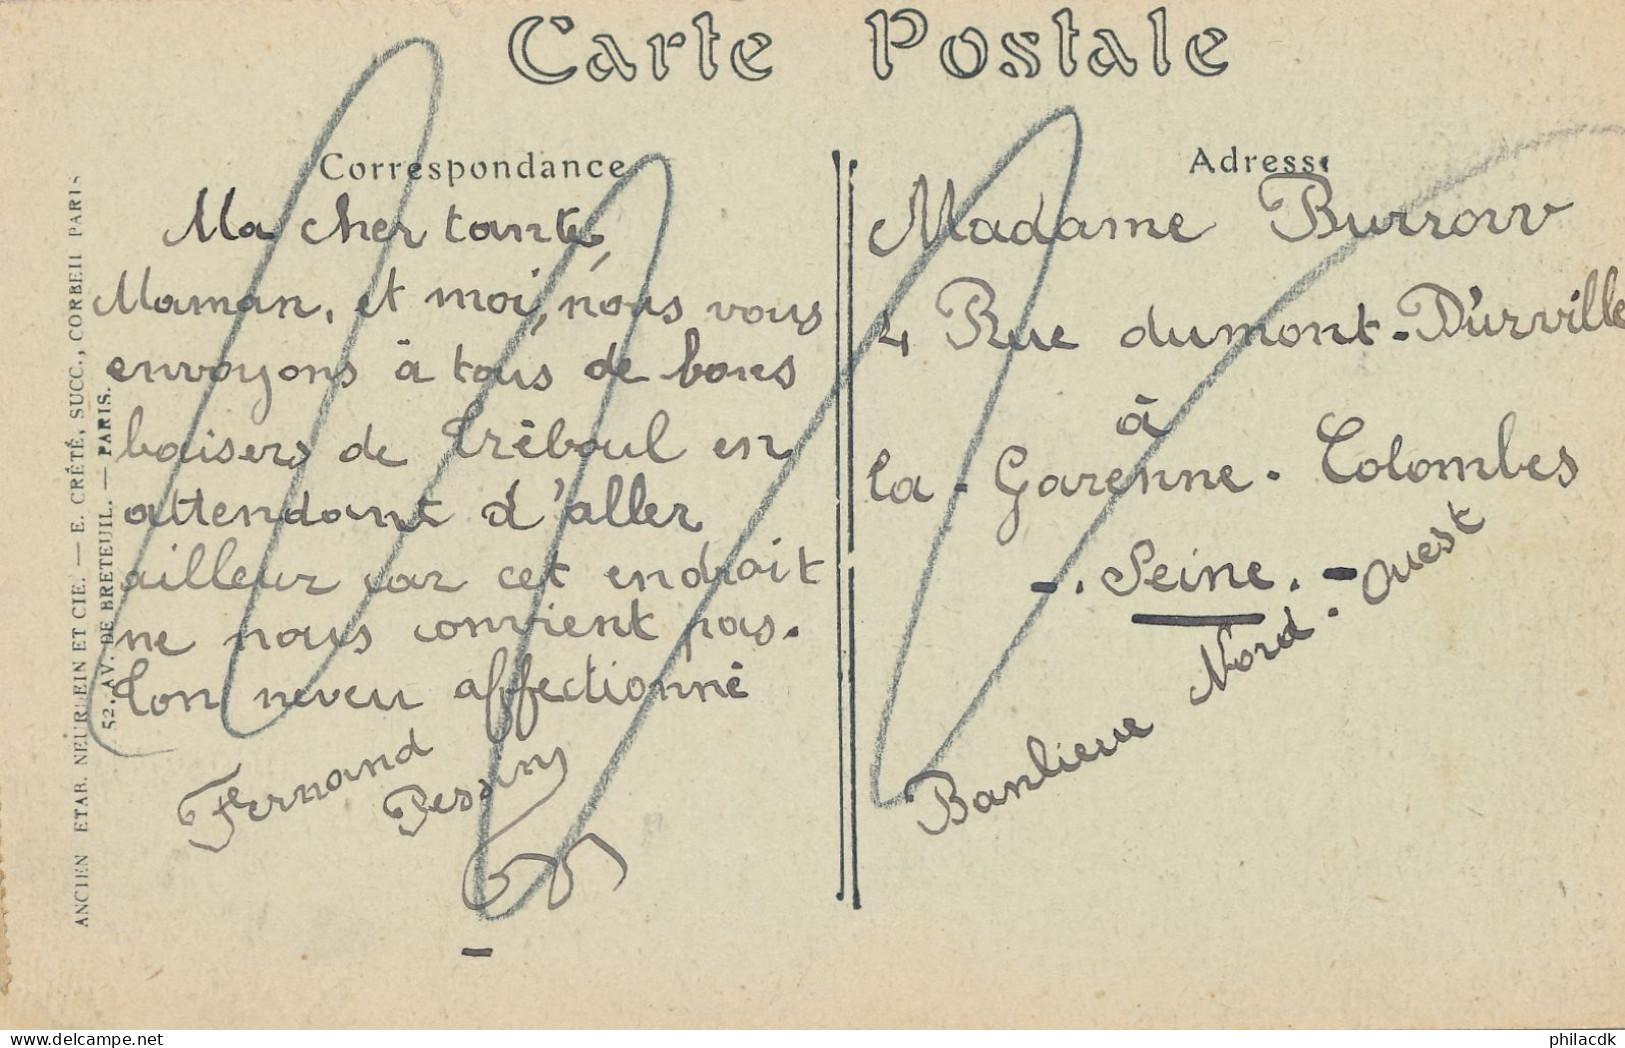 Carte Postale
Correspondance
Ma cher tante,
Maman, et moi, nous vous
envoyons à tous de bons
baisers de Tréboul en
attendant d'aller
ailleur car cet endroit
ne nous convient pas.
Ton neveu affectionné
Fernand
Adresse
Madame Burrow
4 Rue dumont-D'urville
à
la-Garenne-Colombes
-. Seine. -
Banlieue Nord-Ouest
ANCIEN ETAB. NEURDEIN ET CIE. — E. CRÉTÉ, SUCC., CORBEIL PARIS
52, AV. DE BRETEUIL. — PARIS.
philacdk